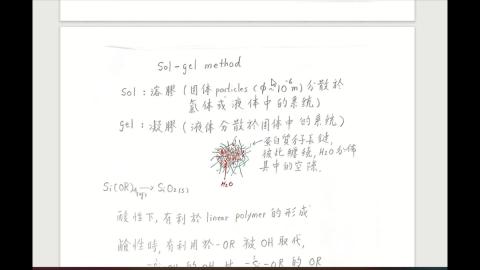 Sol-gel method
Sol : 溶膠 (固体 particles (φ~10⁻⁶m) 分散於
氣体或液体中的系統)
gel : 凝膠 (液体分散於固体中的系統)
蛋白質分子長鏈,
彼此纏繞, H₂O分佈
其中的空隙.
H₂O
Si(OR)₄ → SiO₂(s)
酸性下, 有利於 linear polymer 的形成
鹼性時, 有利用於 -OR 被 OH 取代,
的 OH 比 -Si-OR 的 OR